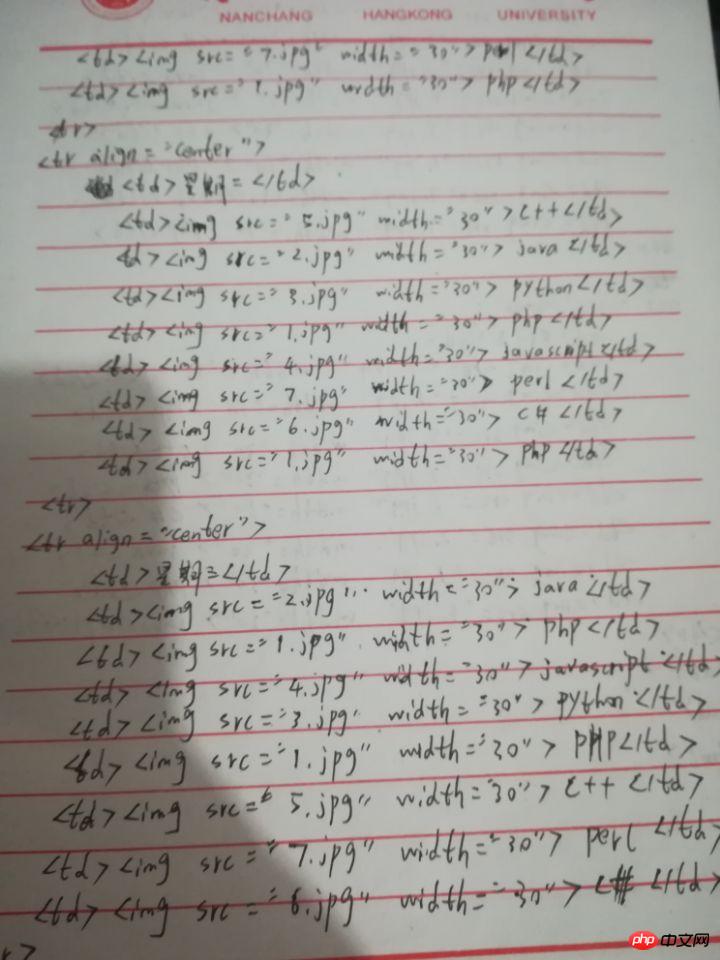 NANCHANG HANGKONG UNIVERSITY
<td> <img src="7.jpg" width="30"> perl </td>
<td> <img src="1.jpg" width="30"> php </td>
<tr>
<tr align="center">
<td> 星期二 </td>
<td> <img src="5.jpg" width="30"> C++ </td>
<td> <img src="2.jpg" width="30"> java </td>
<td> <img src="3.jpg" width="30"> python </td>
<td> <img src="1.jpg" width="30"> php </td>
<td> <img src="4.jpg" width="30"> javascript </td>
<td> <img src="7.jpg" width="30"> perl </td>
<td> <img src="6.jpg" width="30"> C# </td>
<td> <img src="1.jpg" width="30"> php </td>
<tr>
<tr align="center">
<td> 星期三 </td>
<td> <img src="2.jpg" width="30"> java </td>
<td> <img src="1.jpg" width="30"> php </td>
<td> <img src="4.jpg" width="30"> javascript </td>
<td> <img src="3.jpg" width="30"> python </td>
<td> <img src="1.jpg" width="30"> PHP </td>
<td> <img src="5.jpg" width="30"> C++ </td>
<td> <img src="7.jpg" width="30"> perl </td>
<td> <img src="6.jpg" width="30"> C# </td>
r>
php 中文网